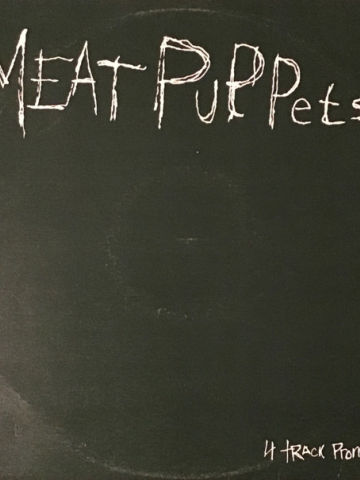 MEAT PUPPets
4 tRACK Prom